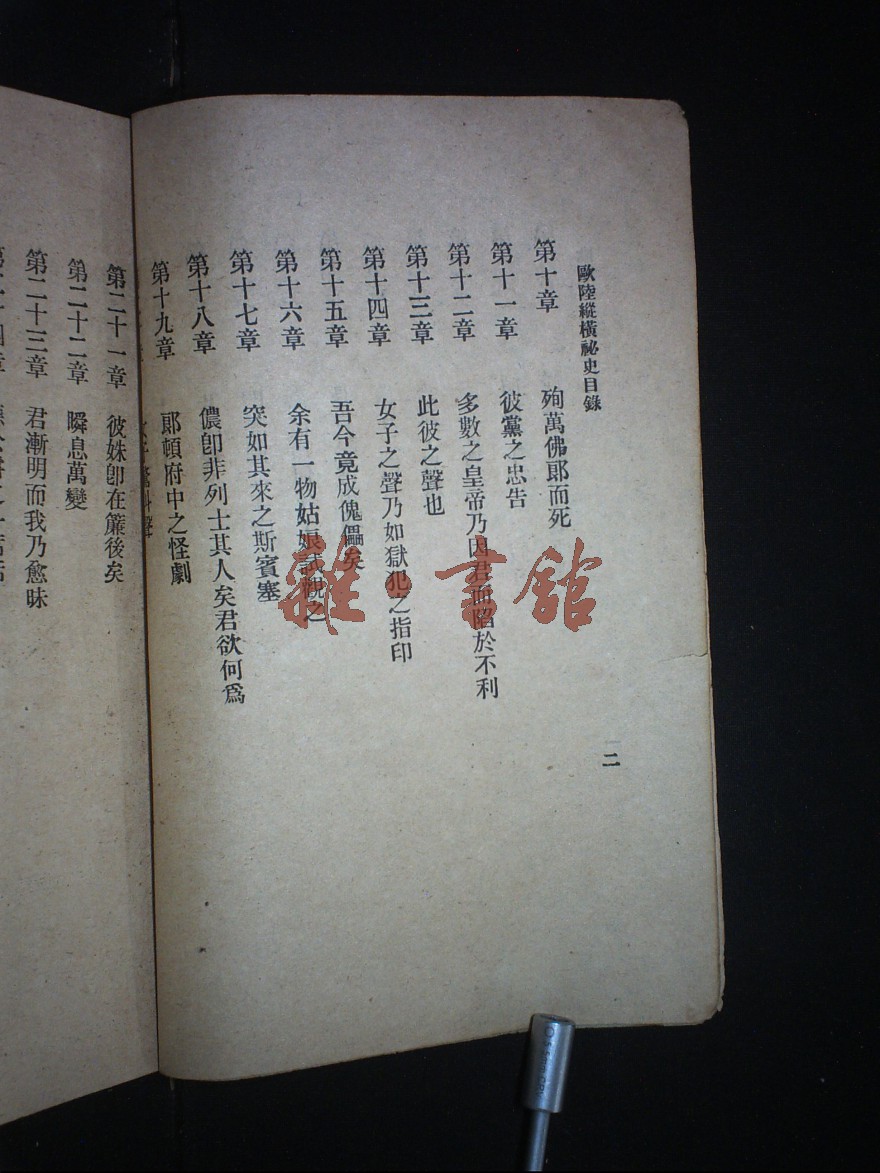 歐陸縱橫祕史目錄
二
第十章 殉萬佛郎而死
第十一章 彼黨之忠告
第十二章 多數之皇帝乃因君而陷於不利
第十三章 此彼之聲也
第十四章 女子之聲乃如獄犯之指印
第十五章 吾今竟成傀儡矣
第十六章 余有一物姑娘試觀之
第十七章 突如其來之斯賓塞
第十八章 儂卽非列士其人矣君欲何爲
第十九章 郞頓府中之怪劇
第二十一章 彼姝卽在簾後矣
第二十二章 瞬息萬變
第二十三章 君漸明而我乃愈昧
雜·書館